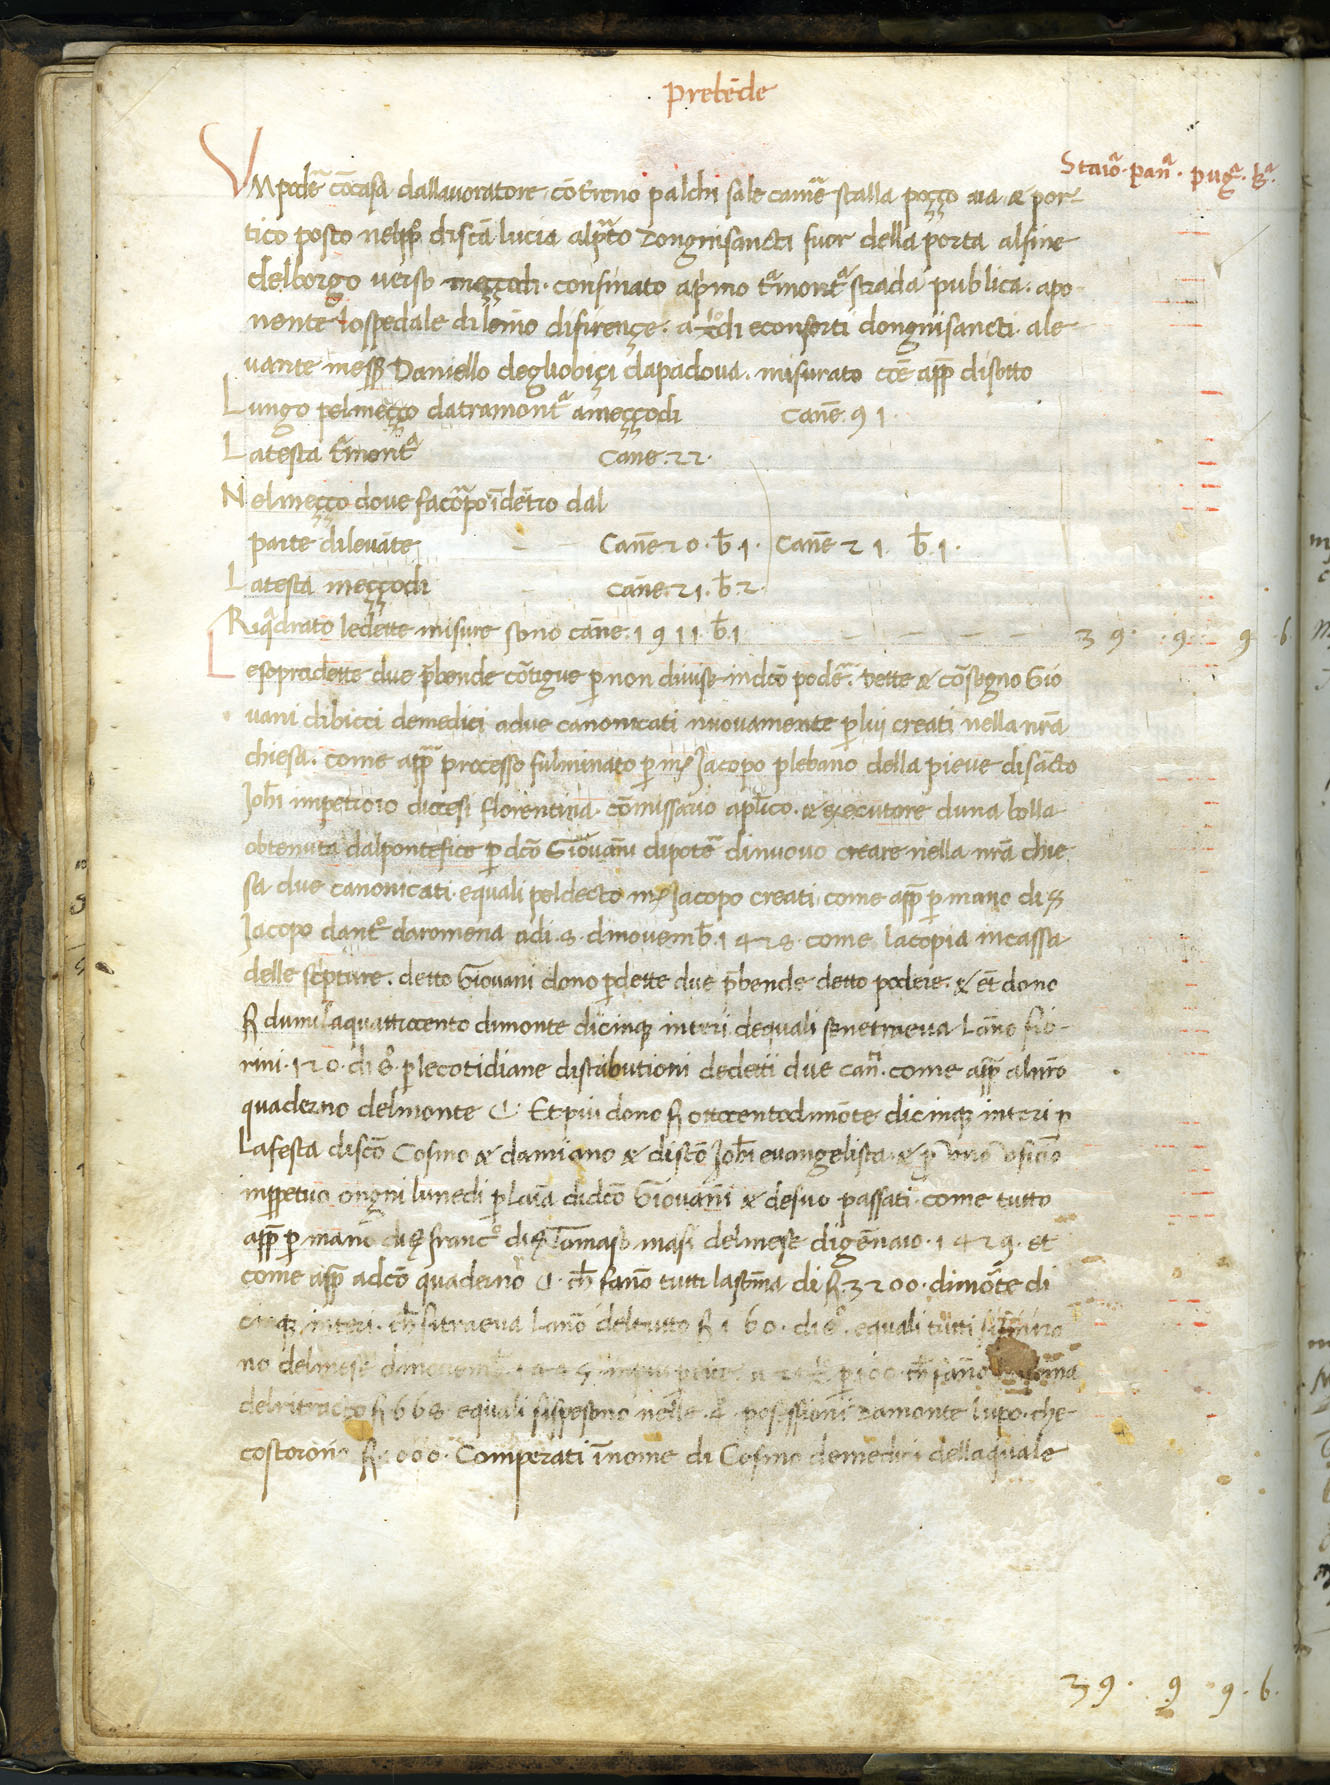 Prebēde
Staioᵃ· panᵃ· pugᵃ· bᵃ·
VN podeᵉ cōcasa dallavoratore· cō treno palchi sale camᵉ stalla poçço aia & por
tico posto nelpp̄ᵒ discā lucia alprᵃto dongnisancti fuor della porta alfine
delborgo verso meççodi· confinato aprimo tᵃmontᵃ strada publica· apo
nente lospedale dilemo difirençe· a di econsorti dongnisancti· ale
vante mess̄ Daniello degliobiçi dapadova· misurato cōe app̄ disotto
Lungo pelmeçço datramontᵃ ameççodi canē· 91
Latesta tᵃmontᵃ cane· 22·
Nelmeçço dove facāpo īdētro dal
parte dilevāte canē 20· b̄ 1· canē 21 b̄ 1·
Latesta meççodi canē· 21· b̄· 2·
Rqᵃdrato ledette misure sono canē· 1911 b̄· 1 39· 9· 9· 6
Lesopradette due p̄bende cōtigue p non divise indcō podeᵉ· dette & cōsegno Gio
vani dibicci demedici adue canonicati nuovamente plui creati nella nrā
chiesa· come app̄ processo fulminato p m̄ Jacopo plebano della pieve disācto
Joh̄i impetroio diocesi florentina· cōmissario apl̄ico· & executore duna bolla
obtenuta dalpontefice p dcō Giovāni dipotē dinuovo creare nella nrā chie
sa due canonicati· equali peldecto m̄ Jacopo creati· come app̄ p mano di s̄
Jacopo dantᵒ daromena adi· 8· dinovemb̄· 1428· come lacopia incassa
delle scpture· detto Giovani dono pdette due p̄bende detto podere· & et dono
f̄ dumilaquattrocento dimonte dicinq interi dequali senetraeva lāno fio
rini· 120· di sᵒ· p lecotidiane distributioni dedetti due canⁱ· come app̄ alnrō
quaderno delmonte C· Et piu dono f̄ ottocentodimōte dicinq interi p
Lafesta discō Cosmo & damiano & discō Joh̄i evangelista· & p uno oficio
inppetuo ongni lunedi p laīa didcō Giovāni & desuo passati· come tutto
app̄ p mano di s̄ francᵒ di s̄ Tomaso masi delmese digēnaio· 1429· et
come app̄ adcō quaderno C· ch̄ fano tutti lasōma di f̄· 3200· dimōte di
cinq interi· ch̄ sitraeva lanō deltutto f̄ 160· di sᵒ· equali tutti
no delmese dinovemb̄ p 100· ch̄ fano
delritracto f̄ 668· equali sispesono nelle· 4· posessioni damonte lupo· che
costorono f̄ 000· Comperati īnome di Cosimo demedici dellaquale
39· 9 9· 6·